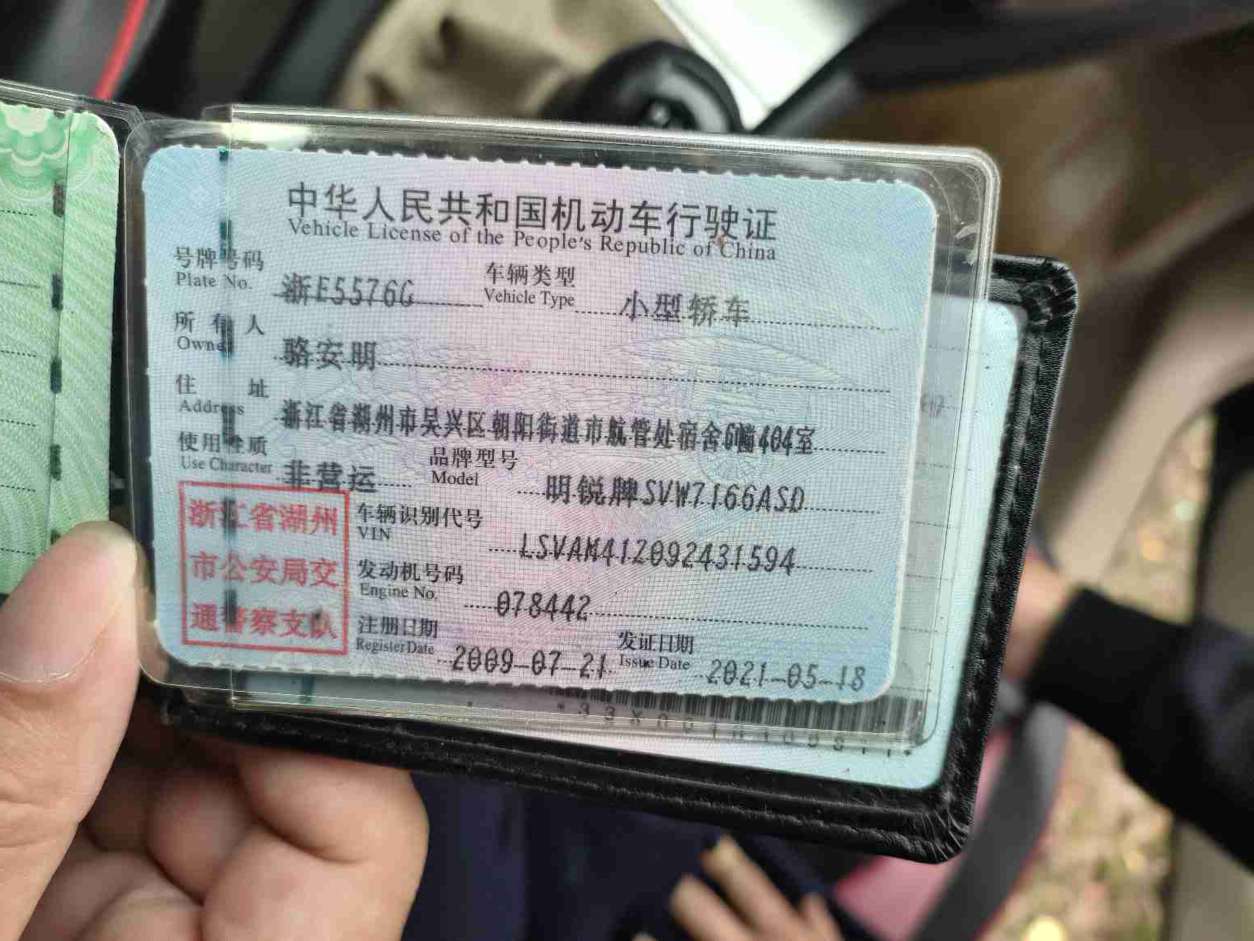 中华人民共和国机动车行驶证
Vehicle License of the People's Republic of China
号牌号码 浙E5576G 车辆类型 小型轿车
Plate No. Vehicle Type
所有人 骆安明
Owner
住址 浙江省湖州市吴兴区朝阳街道市航管处宿舍6幢404室
Address
使用性质 非营运 品牌型号 明锐牌SVW7166ASD
Use Character Model
浙江省湖州
市公安局交
通警察支队
车辆识别代号 LSVAM41Z092431594
VIN
发动机号码 078442
Engine No.
注册日期 2009-07-21 发证日期 2021-05-18
Register Date Issue Date